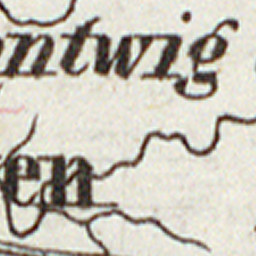 ntwig
en